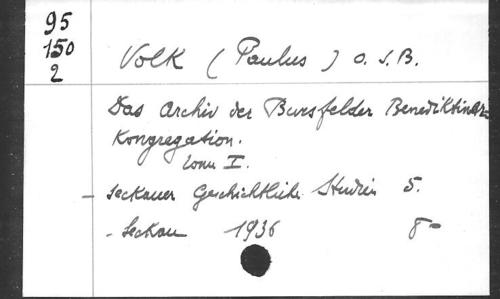 95
150
2
Volk (Paulus) O.S.B.
Das Archiv der Bursfelder Benediktiner
Kongregation.
Tom I.
- Seckauer Geschichtliche Studien 5.
- Seckau 1936 8°